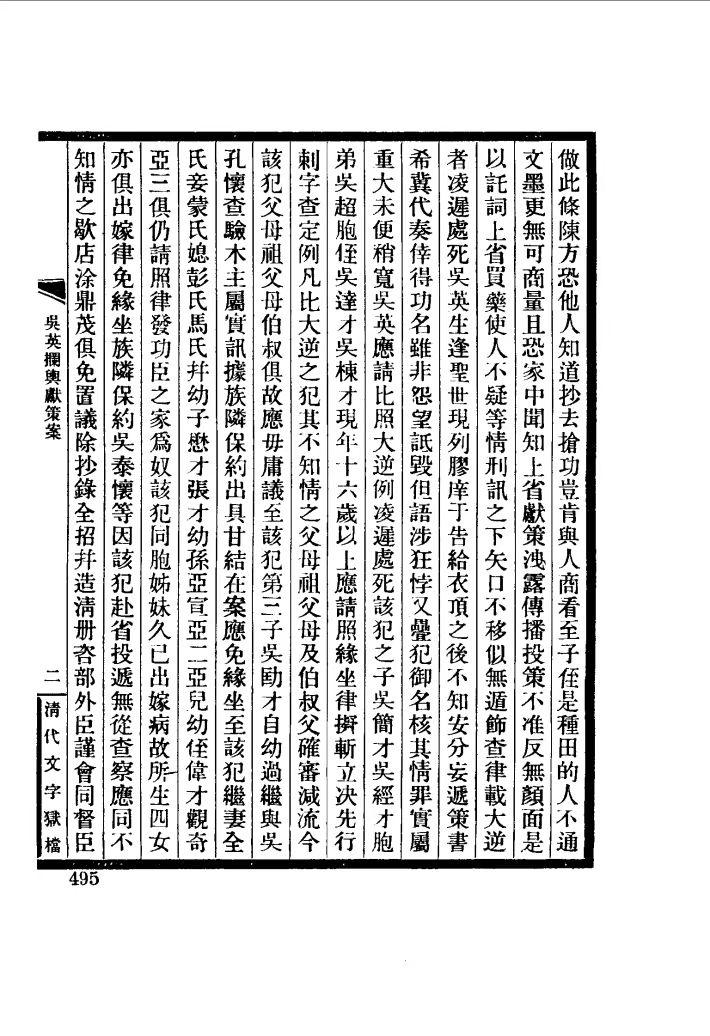 做此條陳方恐他人知道抄去搶功豈肯與人商看至子侄是種田的人不通
文墨更無可商量且恐家中聞知上省獻策洩露傳播投策不准反無顏面是
以託詞上省買藥使人不疑等情刑訊之下矢口不移似無遁飾查律載大逆
者凌遲處死吳英生逢聖世現列膠庠于告給衣頂之後不知安分妄遞策書
希冀代奏倖得功名雖非怨望詆毀但語涉狂悖又疊犯御名核其情罪實屬
重大未便稍寬吳英應請比照大逆例凌遲處死該犯之子吳簡才吳經才胞
弟吳超胞侄吳達才吳棟才現年十六歲以上應請照緣坐律擬斬立决先行
刺字查定例凡比大逆之犯其不知情之父母祖父母及伯叔父確審減流今
該犯父母祖父母伯叔俱故應毋庸議至該犯第三子吳勱才自幼過繼與吳
孔懷查驗木主屬實訊據族隣保約出具甘結在案應免緣坐至該犯繼妻全
氏妾蒙氏媳彭氏馬氏幷幼子懋才張才幼孫亞宣亞二亞兒幼侄偉才觀奇
亞三俱仍請照律發功臣之家爲奴該犯同胞姊妹久已出嫁病故所生四女
亦俱出嫁律免緣坐族隣保約吳泰懷等因該犯赴省投遞無從查察應同不
知情之歇店涂鼎茂俱免置議除抄錄全招幷造清册咨部外臣謹會同督臣
吳英攔輿獻策案
二
清代文字獄檔
495